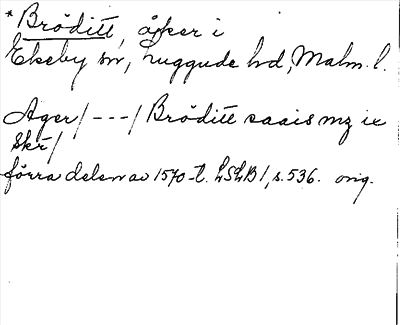 * Bröditt, åker i
Ekeby sn, Luggude hd, Malm. l.
Ager / - - - / Bröditt saais mz ix
skr /
förra delen av 1570-t. LSLB 1, s. 536. orig.